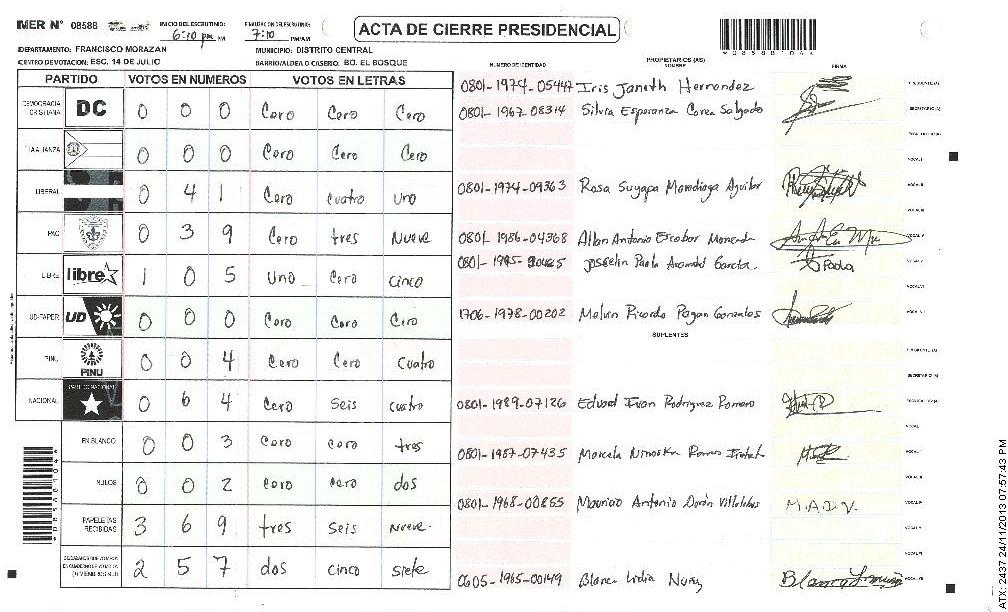 MER N° 08588 INICIO DEL ESCRUTINIO: 6:10 pm FINALIZACION DEL ESCRUTINIO: 7:10 PM/AM
ACTA DE CIERRE PRESIDENCIAL
DEPARTAMENTO: FRANCISCO MORAZAN MUNICIPIO: DISTRITO CENTRAL
CENTRO DE VOTACION: ESC. 14 DE JULIO BARRIO/ALDEA O CASERIO: BO. EL BOSQUE
PARTIDO VOTOS EN NUMEROS VOTOS EN LETRAS
DEMOCRACIA CRISTIANA DC 0 0 0 Cero Cero Cero
0 0 0 Cero Cero Cero
LIBERAL 0 4 1 Cero cuatro uno
PAC 0 3 9 Cero tres Nueve
LIBRE libre 1 0 5 Uno Cero cinco
UD-FAPER UD 0 0 0 Cero Cero Cero
PINU PINU 0 0 4 Cero Cero cuatro
NACIONAL PARTIDO NACIONAL 0 6 4 Cero Seis cuatro
EN BLANCO 0 0 3 Cero Cero tres
NULOS 0 0 2 Cero Cero dos
PAPELETAS RECIBIDAS 3 6 9 tres Seis Nueve
2 5 7 dos cinco siete
NUMERO DE IDENTIDAD PROPIETARIOS (AS) NOMBRE FIRMA
0801-1974-05447 Iris Janeth Hernandez PRESIDENTE(A)
0801-1967-08314 Silvia Esperanza Corea Salgado SECRETARIO(A)
0801-1974-09363 Rosa Suyapa Maradiaga Aguilar
0801-1986-04368 Allan Antonio Escobar
Josselin Paola Garcia Paola
1706-1978-00202 Melvin Ricardo Pagan Gonzales
SUPLENTES
SECRETARIO(A)
0801-1989-07126 Edward Ivan Rodriguez Romero
0801-1987-07435 Marcela Ninoska
0801-1968-00855 Mauricio Antonio Durón Villalobos M.A.D.V.
0605-1965-00149 Blanca Lidia Nuñez Blanca
ATX: 2437 24/11/2013 07:57:43 PM